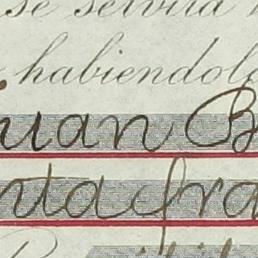 se servirá
habiendol
uan B
nta fra